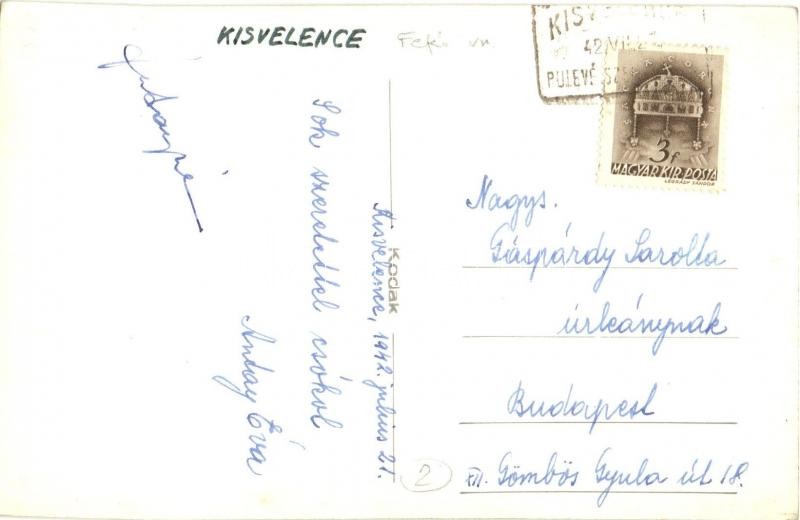 KISVELENCE
KISVELENCE
42.VII.2
PULEVÉ SZ
3f
MAGYAR KIR. POSTA
LÉGRÁDY SÁNDOR
Kisvelence, 1942. július 21.
Sok szeretettel csókol
Anday Éva
Kodak
Nagys.
Gáspárdy Sarolta
úrleánynak
Budapest
XII. Gömbös Gyula út 18.
2